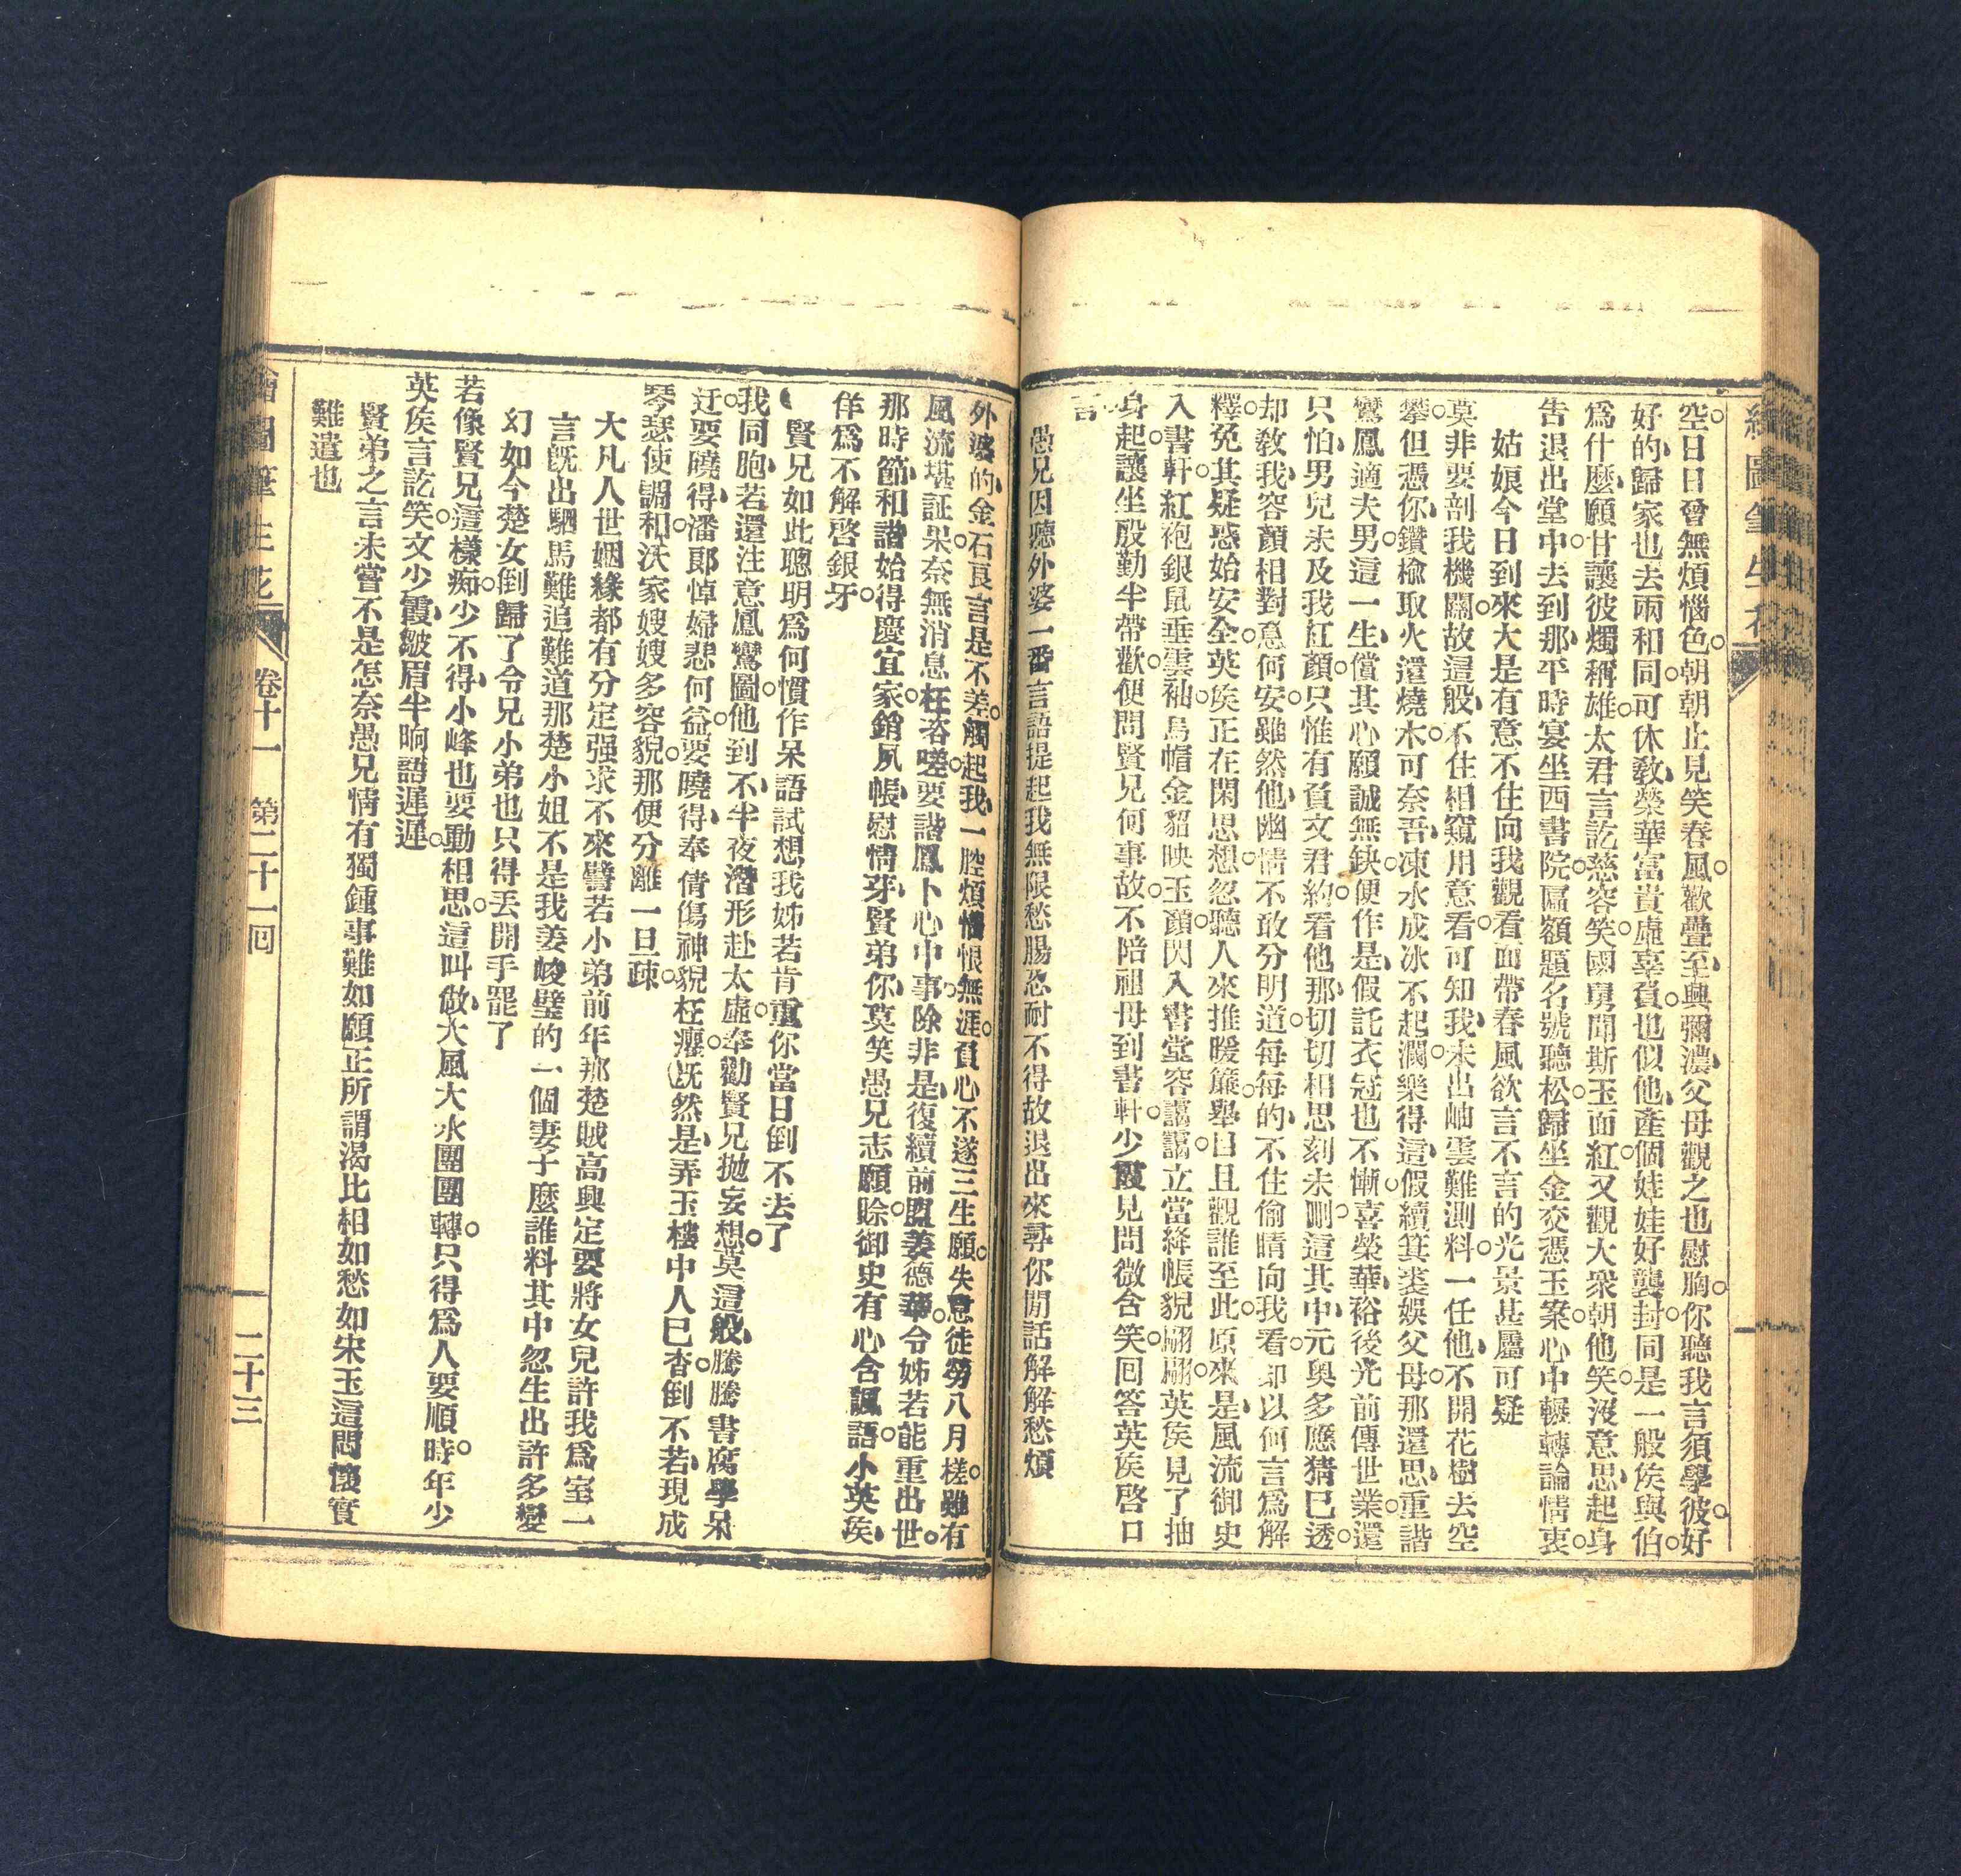 空日日曾無煩惱色朝朝止見笑春風歡疊至興彌濃父母觀之也慰胸你聽我言須學彼好
好的歸家也去兩和同可休敎榮華富貴虛辜負也似他產個娃娃好襲封同是一般侯與伯
爲什麽願甘讓彼獨稱雄太君言訖慈容笑國舅聞斯玉面紅又觀大衆朝他笑沒意思起身
告退出堂中去到那平時宴坐西書院匾額題名號聽松歸坐金交憑玉案心中輾轉論情衷
姑娘今日到來大是有意不住向我觀看面帶春風欲言不言的光景甚屬可疑
莫非要剖我機關故這般不住相窺用意看可知我未出岫雲難測料一任他不開花樹去空
攀但憑你鑽楡取火還燒木可奈吾凍水成冰不起瀾樂得這假續箕裘娛父母那還思重諧
鸞鳳適夫男這一生償其心願誠無缺便作是假託衣冠也不慚喜榮華裕後光前傳世業還
只怕男兒未及我紅顏只惟有負文君約看他那切切相思刻未刪這其中元奧多應猜已透
却敎我容顏相對意何安雖然他幽情不敢分明道每每的不住偷睛向我看却以何言爲解
釋免其疑惑始安全英侯正在閑思想忽聽人來推暖簾舉目且觀誰至此原來是風流御史
入書軒紅袍銀鼠垂雲袖烏帽金貂映玉顏閃入書堂容藹藹立當絳帳貌翩翩英侯見了抽
身起讓坐殷勤半帶歡便問賢兄何事故不陪祖母到書軒少霞見問微含笑回答英侯啓口
言
愚兄因聽外婆一番言語提起我無限愁腸忍耐不得故退出來尋你閒話解解愁煩
外婆的金石良言是不差觸起我一腔煩惱恨無涯負心不遂三生願失意徒勞八月槎雖有
風流堪証果奈無消息枉咨嗟要諧鳳卜心中事除非是復續前盟姜德華令姊若能重出世
那時節和諧始得慶宜家銷夙帳慰情芽賢弟你莫笑愚兄志願賒御史有心含諷語小英侯
佯爲不解啓銀牙
賢兄如此聰明爲何慣作呆語試想我姊若肯重你當日倒不去了
我同胞若還注意鳳鸞圖他到不半夜潛形赴太虛奉勸賢兄抛妄想莫這般騰騰書腐學呆
迂要曉得潘郞悼婦悲何益要曉得奉倩傷神貌枉癯旣然是弄玉樓中人已杳倒不若現成
琴瑟使調和沃家嫂嫂多容貌那便分離一旦疎
大凡人世姻緣都有分定强求不來譬若小弟前年那楚賊高興定要將女兒許我爲室一
言旣出駟馬難追難道那楚小姐不是我姜峻璧的一個妻子麽誰料其中忽生出許多變
幻如今楚女倒歸了令兄小弟也只得丟開手罷了
若像賢兄這樣痴少不得小峰也要動相思這叫做大風大水團團轉只得爲人要順時年少
英侯言訖笑文少霞皺眉半晌語遲遲
賢弟之言未嘗不是怎奈愚兄情有獨鍾事難如願正所謂渴比相如愁如宋玉這悶懷實
難遣也
繪圖筆生花 卷十一 第二十一回 二十三